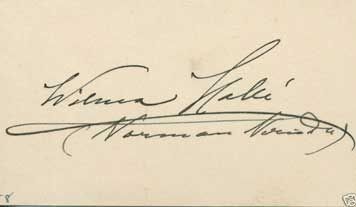 Wilma Hallé
(Norman Neruda)
8